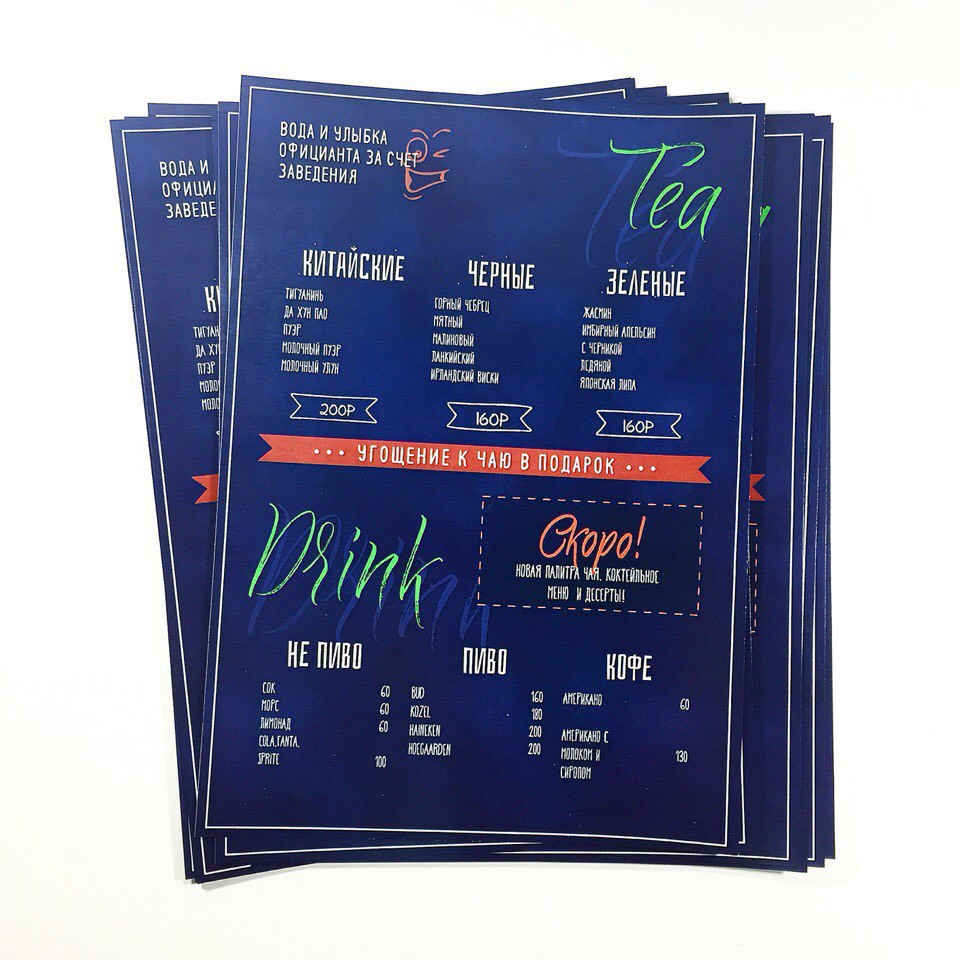 ВОДА И УЛЫБКА
ОФИЦИАНТА ЗА СЧЕТ
ЗАВЕДЕНИЯ
Tea
КИТАЙСКИЕ
ТИГУАНИНЬ
ДА ХУН ПАО
ПУЭР
МОЛОЧНЫЙ ПУЭР
МОЛОЧНЫЙ УЛУН
200Р
ЧЕРНЫЕ
ГОРНЫЙ ЧЕБРЕЦ
МЯТНЫЙ
МАЛИНОВЫЙ
ЛАНКИЙСКИЙ
ИРЛАНДСКИЙ ВИСКИ
160Р
ЗЕЛЕНЫЕ
ЖАСМИН
ИМБИРНЫЙ АПЕЛЬСИН
С ЧЕРНИКОЙ
ЛЕДЯНОЙ
ЯПОНСКАЯ ЛИПА
160Р
••• УГОЩЕНИЕ К ЧАЮ В ПОДАРОК •••
Drink
Скоро!
НОВАЯ ПАЛИТРА ЧАЯ, КОКТЕЙЛЬНОЕ
МЕНЮ И ДЕСЕРТЫ!
НЕ ПИВО
СОК 60
МОРС 60
ЛИМОНАД 60
COLA,FANTA,
SPRITE 100
ПИВО
BUD 160
KOZEL 180
HAINEKEN 200
HOEGAARDEN 200
КОФЕ
АМЕРИКАНО 60
АМЕРИКАНО С
МОЛОКОМ И 130
СИРОПОМ
ВОДА И
ОФИЦИ
ЗАВЕДЕ